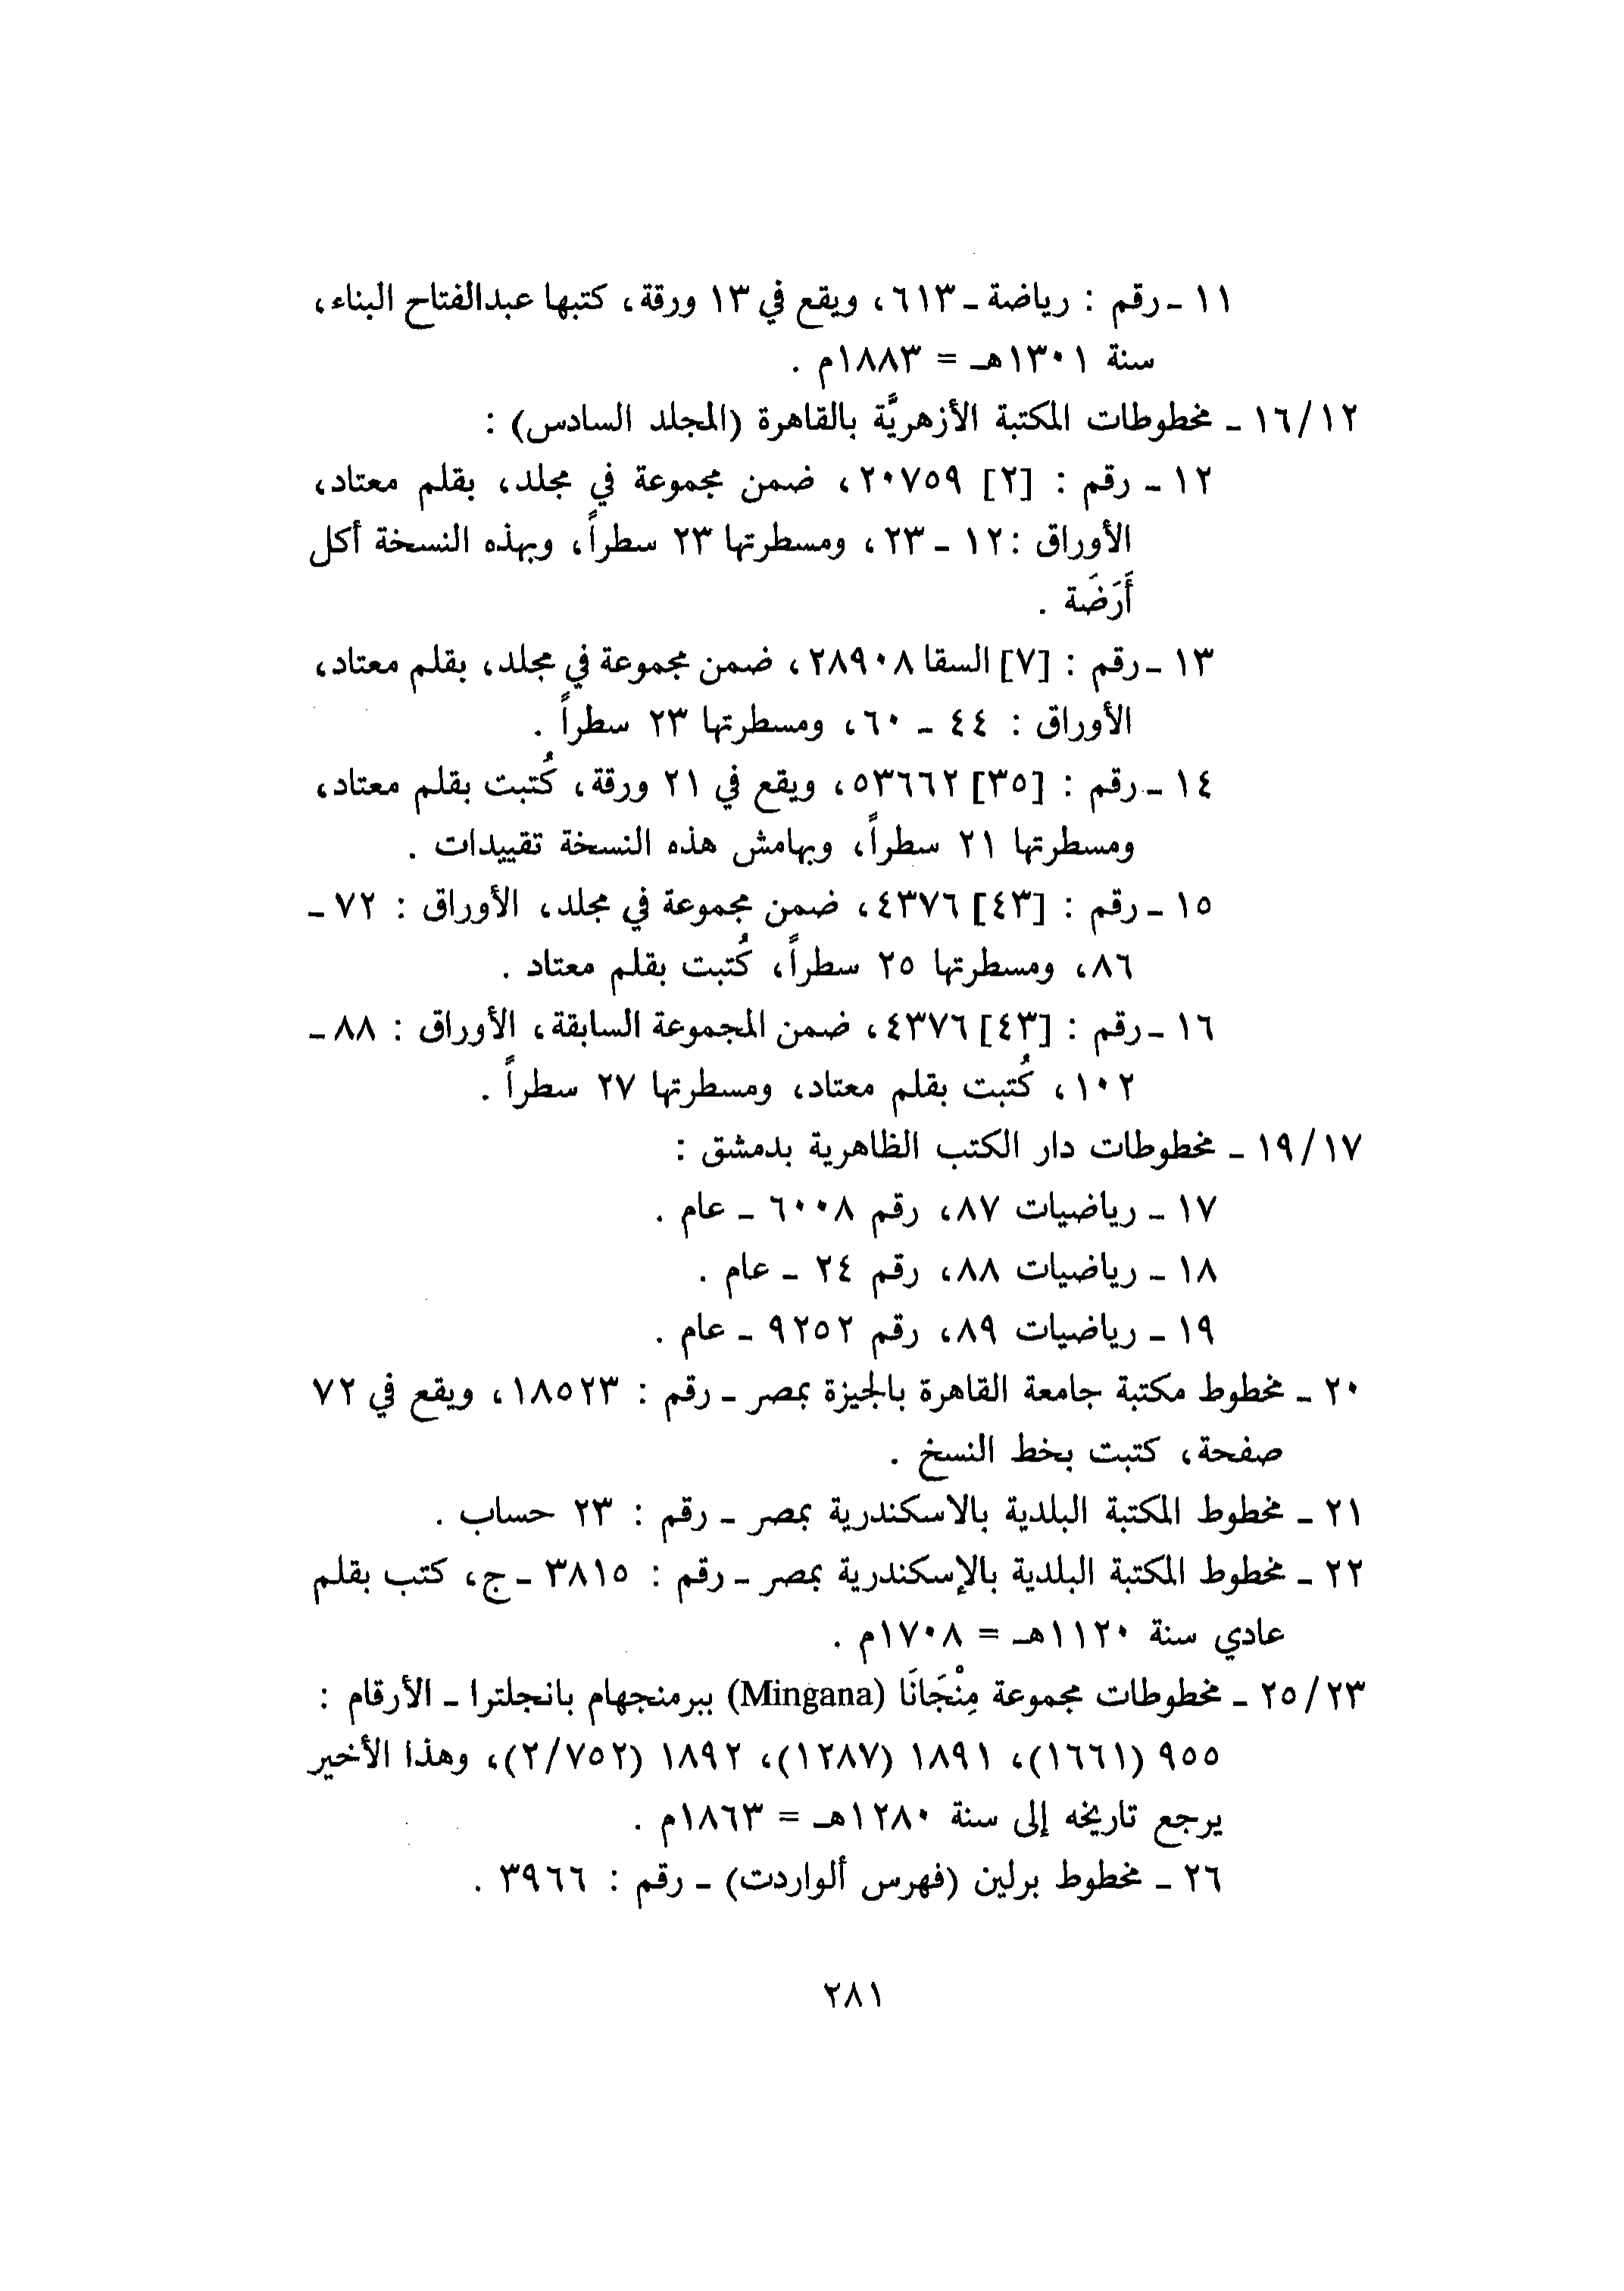 ١١ ـ رقم : رياضة ـ ٦١٣، ويقع في ١٣ ورقة، كتبها عبدالفتاح البناء،
سنة ١٣٠١هـ = ١٨٨٣م .
١٦/١٢ ـ مخطوطات المكتبة الأزهريَّة بالقاهرة (المجلد السادس) :
١٢ ـ رقم : [٢] ٢٠٧٥٩، ضمن مجموعة في مجلد، بقلم معتاد،
الأوراق : ١٢ ـ ٢٣، ومسطرتها ٢٣ سطراً، وبهذه النسخة أكل
أَرَضَة .
١٣ ـ رقم : [٧] السقا ٢٨٩٠٨، ضمن مجموعة في مجلد، بقلم معتاد،
الأوراق : ٤٤ ـ ٦٠، ومسطرتها ٢٣ سطراً .
١٤ ـ رقم : [٣٥] ٥٣٦٦٢، ويقع في ٢١ ورقة، كُتبت بقلم معتاد،
ومسطرتها ٢١ سطراً، وبهامش هذه النسخة تقييدات .
١٥ ـ رقم : [٤٣] ٤٣٧٦، ضمن مجموعة في مجلد، الأوراق : ٧٢ ـ
٨٦، ومسطرتها ٢٥ سطراً، كُتبت بقلم معتاد .
١٦ ـ رقم : [٤٣] ٤٣٧٦، ضمن المجموعة السابقة، الأوراق : ٨٨ ـ
١٠٢، كُتبت بقلم معتاد، ومسطرتها ٢٧ سطراً .
١٩/١٧ ـ مخطوطات دار الكتب الظاهرية بدمشق :
١٧ ـ رياضيات ٨٧، رقم ٦٠٠٨ ـ عام .
١٨ ـ رياضيات ٨٨، رقم ٢٤ ـ عام .
١٩ ـ رياضيات ٨٩، رقم ٩٢٥٢ ـ عام .
٢٠ ـ مخطوط مكتبة جامعة القاهرة بالجيزة بمصر ـ رقم : ١٨٥٢٣، ويقع في ٧٢
صفحة، كتبت بخط النسخ .
٢١ ـ مخطوط المكتبة البلدية بالاسكندرية بمصر ـ رقم : ٢٣ حساب .
٢٢ ـ مخطوط المكتبة البلدية بالإسكندرية بمصر ـ رقم : ٣٨١٥ ـ ج، كتب بقلم
عادي سنة ١١٢٠هـ = ١٧٠٨م .
٢٥/٢٣ ـ مخطوطات مجموعة مِنْجَانَا (Mingana) ببرمنجهام بانجلترا ـ الأرقام :
٩٥٥ (١٦٦١)، ١٨٩١ (١٢٨٧)، ١٨٩٢ (٢/٧٥٢)، وهذا الأخير
يرجع تاريخه إلى سنة ١٢٨٠هـ = ١٨٦٣م .
٢٦ ـ مخطوط برلين (فهرس ألواردت) ـ رقم : ٣٩٦٦ .
٢٨١